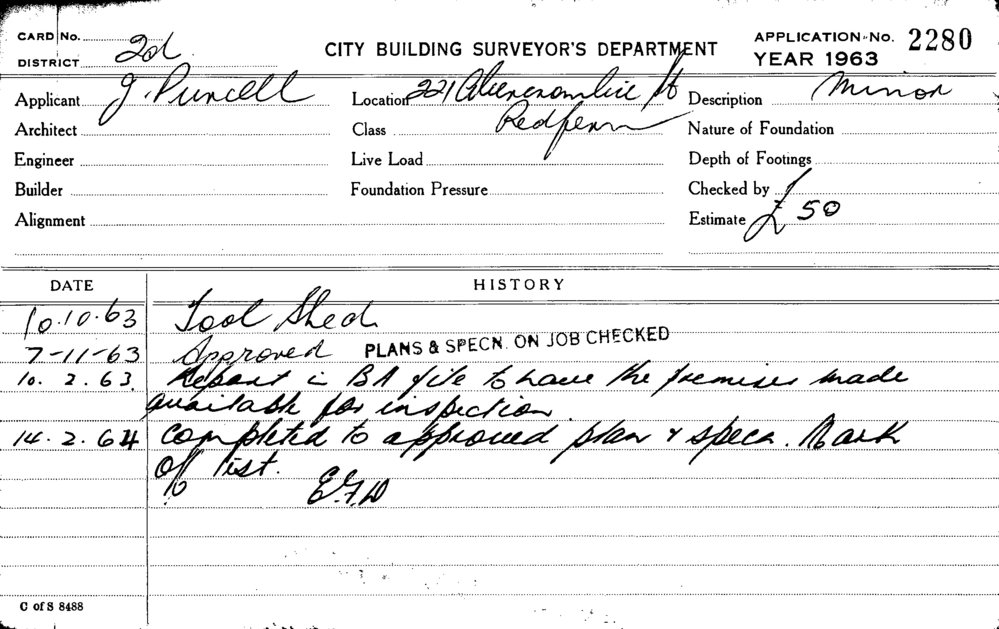 CARD No.
DISTRICT 2d
CITY BUILDING SURVEYOR'S DEPARTMENT
APPLICATION No. 2280
YEAR 1963
Applicant J. Purcell
Location 221 Abercrombie St
Description Minor
Architect
Class Redfern
Nature of Foundation
Engineer
Live Load
Depth of Footings
Builder
Foundation Pressure
Checked by
Alignment
Estimate £ 50
DATE HISTORY
10.10.63 Tool Shed
7-11-63 Approved PLANS & SPECN. ON JOB CHECKED
10. 2. 63. Report in BA file to have the premises made
available for inspection.
14. 2. 64 Completed to approved plan & specn. Mark
off list.
E.F.W
C of S 8488